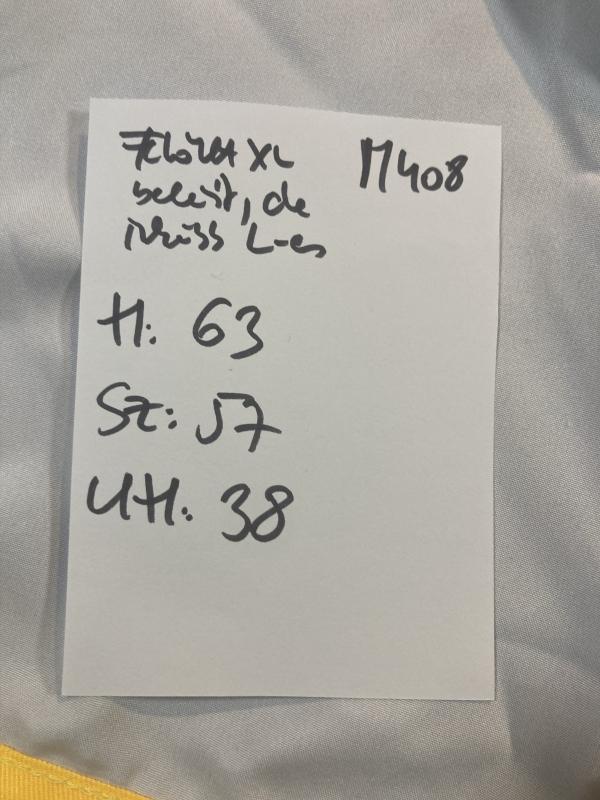 Felőtt XL
beleírt, de
inkább L-es
M408
H: 63
Sz: 57
UH: 38